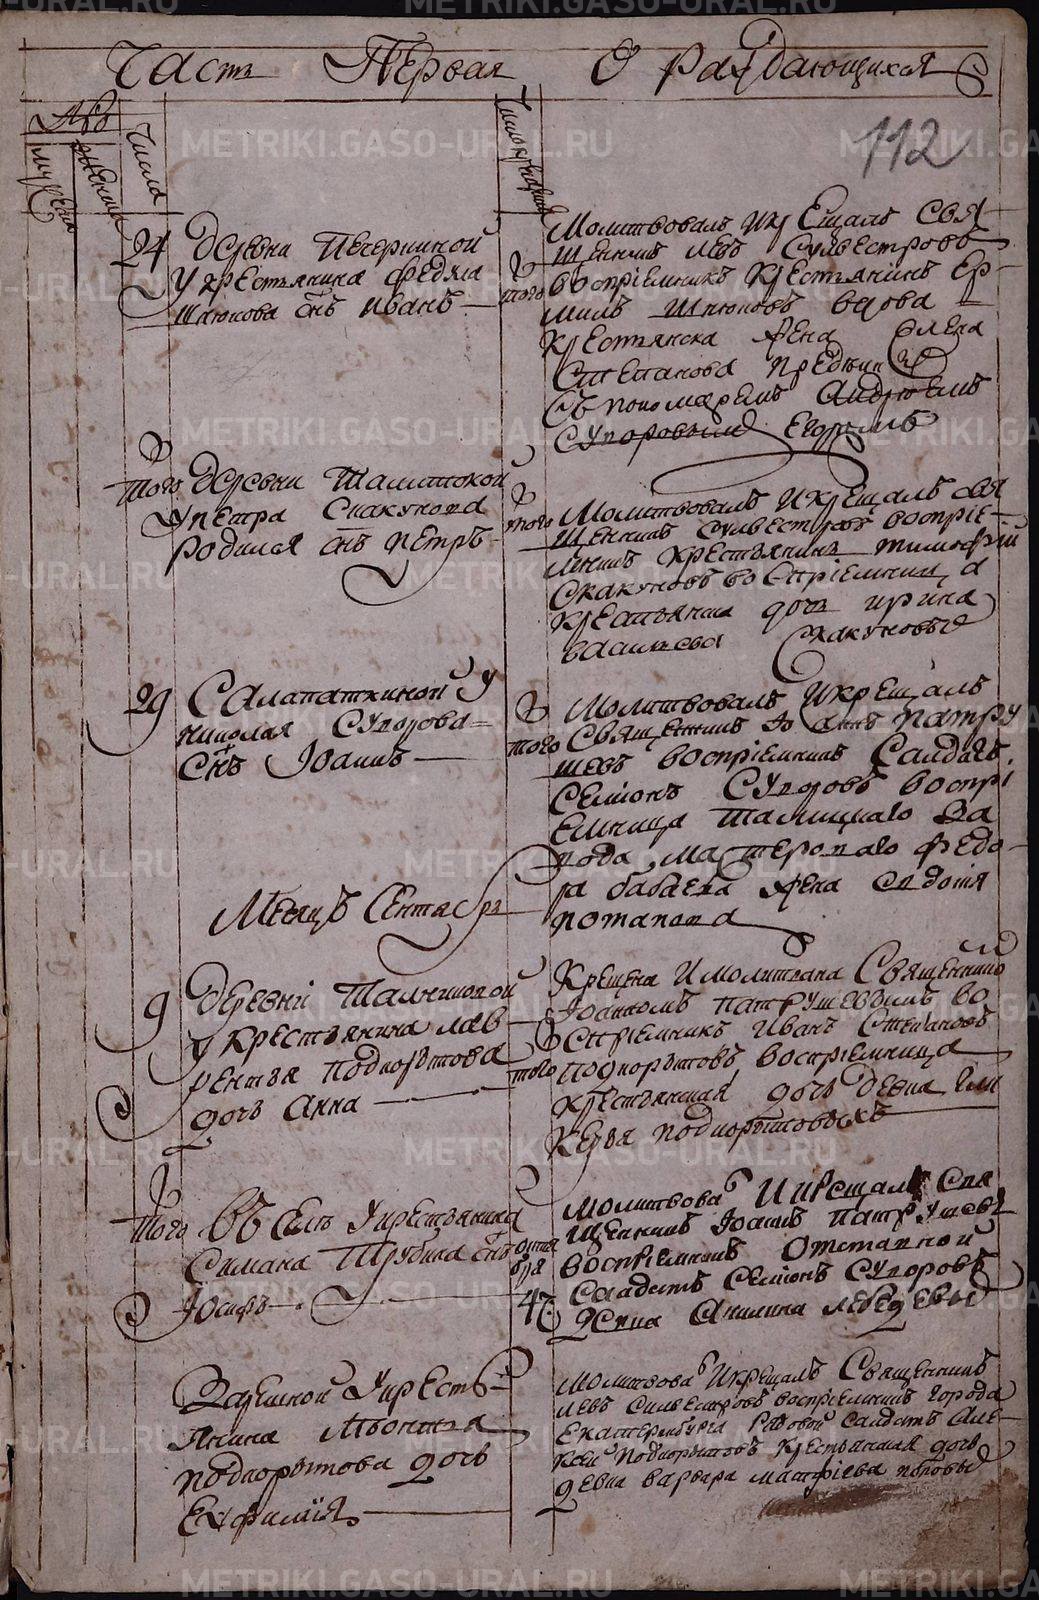 Часть Первая О раждающихся
112
Числа
Число крещения
мужеска
женска
24
деревни Печеркиной
у крестьянина Федула
Шляпова снъ Иванъ
того
Молитвовалъ и крещалъ свя
щенникъ Левъ Сулвестровъ
восприемникъ крестьянинъ Ер
милъ вдова
крестьянска жена Олена
Степанова
съ пономаремъ Андреемъ
Суворовымъ
того
деревни Талицкой
у Петра Скакунова
родился снъ Петръ
того
Молитвовалъ и крещалъ свя
щенникъ Сулвестровъ восприе
мникъ крестьянинъ Тимофей
Скакуновъ восприемница
крестьянина дочь Ирина
Васильева Скакуновы
29
Салапаткиной у
Николая Суворова
снъ Иоаннъ
того
Молитвовалъ и крещалъ
священникъ Иоаннъ Патру
шевъ восприемникъ Салдатъ
Семионъ Суворовъ воспри
емница Талицкаго за
вода мастероваго Федо
ра Бабаева жена Евдотя
Потапова
Месяцъ Сентябрь
9
деревни Талицкой
у крестьянина Лав
рентья Подкорытова
дочь Анна
того
Крещена и молитвана Священникомъ
Иоанномъ Патрушевымъ во
сприемникъ Иванъ Степановъ
Подкорытовъ восприемница
крестьянская дочь девка
Подкорытовыхъ
того
въ селе у крестьянина
Симана Трубина снъ
Иосифъ
октя
бря
4
Молитвова и крещалъ Свя
щенникъ Иоаннъ Патрушевъ
восприемникъ Отставной
Салдатъ Семионъ Суворовъ
девка Акилина Лебедевы
Заречной у кресть
янина Леонтья
Подкорытова дочь
Евфимия
Молитвова и крещалъ Священникъ
Левъ Сильвестровъ восприемникъ города
Екатеринбурга Рядовой салдатъ Але
ксей Подкорытовъ крестьянская дочь
девка Варвара Матфиева Поповы
METRIKI.GASO-URAL.RU